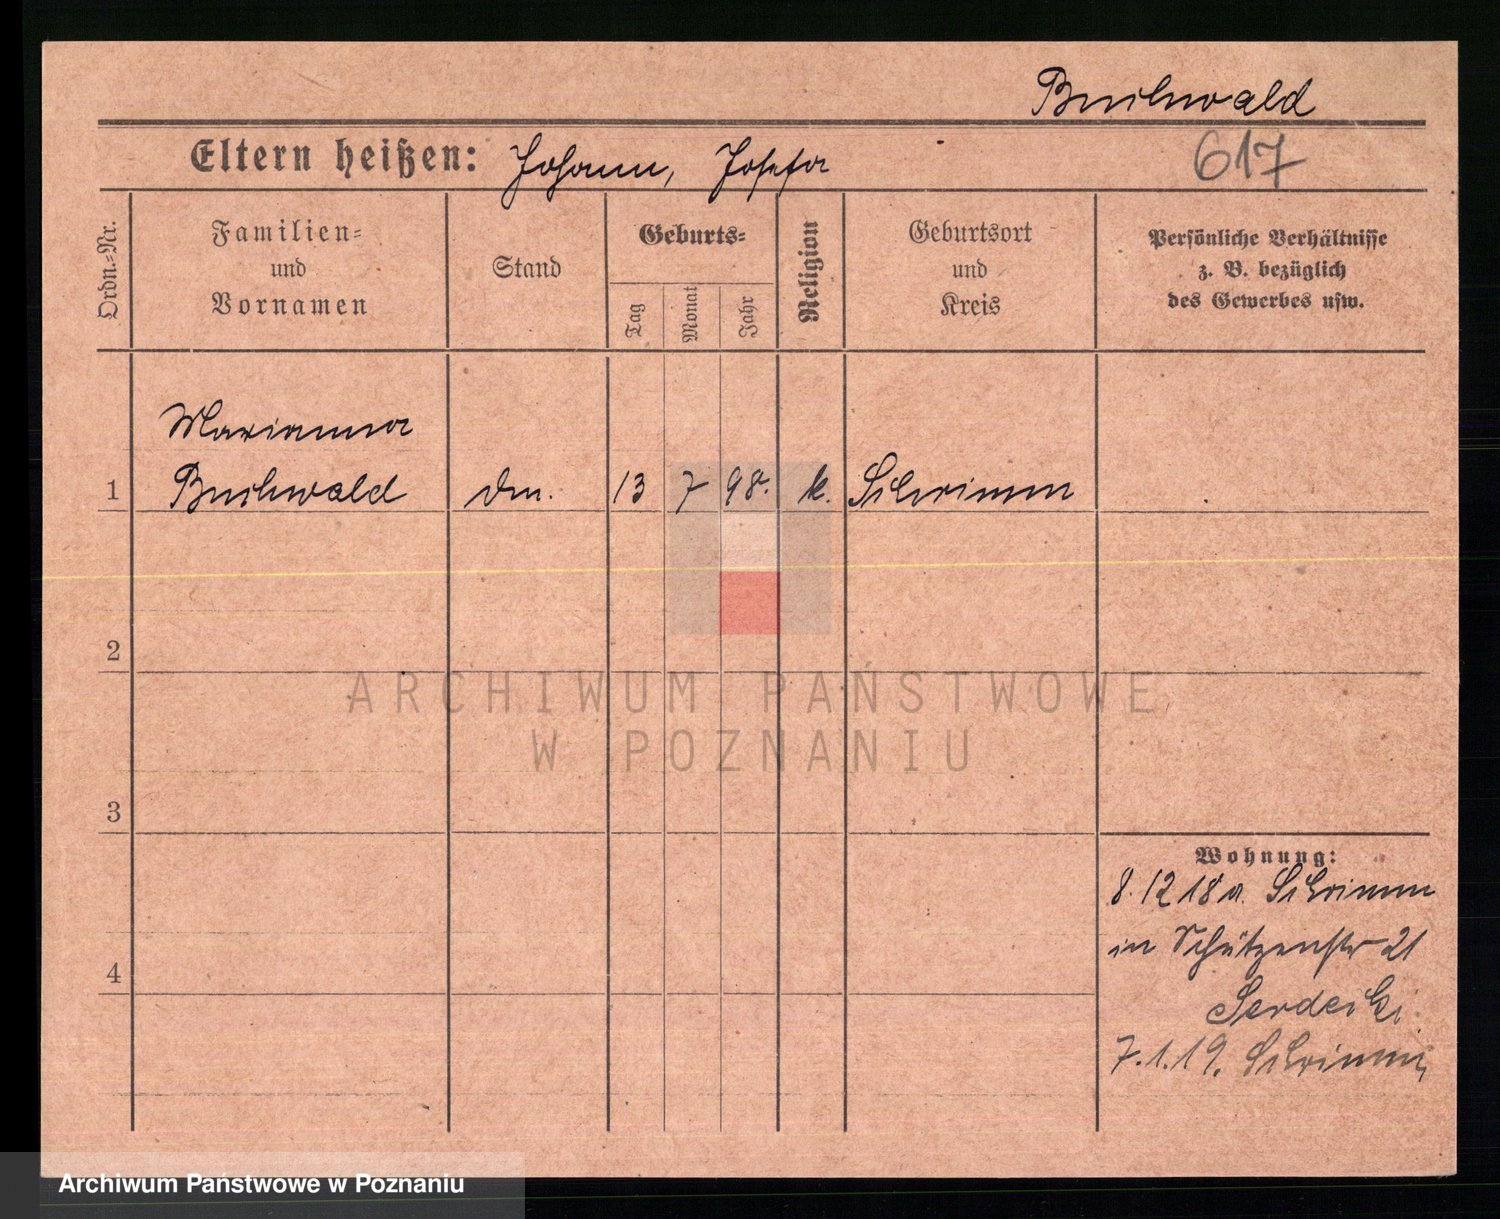 Buchwald
Eltern heißen: Johann, Josefa
617
Ordn.-Nr.
Familien-
und
Vornamen
Stand
Geburts-
Tag
Monat
Jahr
Religion
Geburtsort
und
Kreis
Persönliche Verhältnisse
z. B. bezüglich
des Gewerbes usw.
Marianna
1 Buchwald 13 7 98. k. Schrimm
2
ARCHIWUM PAŃSTWOWE
W POZNANIU
3
Wohnung:
8.12 18 a. Schrimm
in Schützenstr 21
Serdecki
7.1.19. Schrimm
4
Archiwum Państwowe w Poznaniu